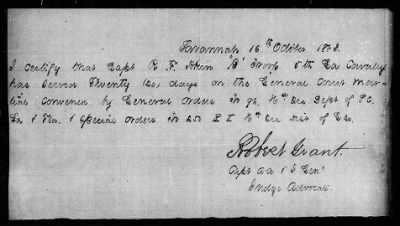 Savannah 16th October 1863.
I certify that Capt R. F. Akin "B" Troop 5th Ga Cavalry
has served Twenty (20) days on the General Court Mar-
tial convened by General Orders No 96. Hd Qrs Dept of S.C.
Ga & Fla. & Special Orders Hd Qrs Dist of Geo.
Robert Grant.
Capt & A A & I Genl
Judge Advocate.